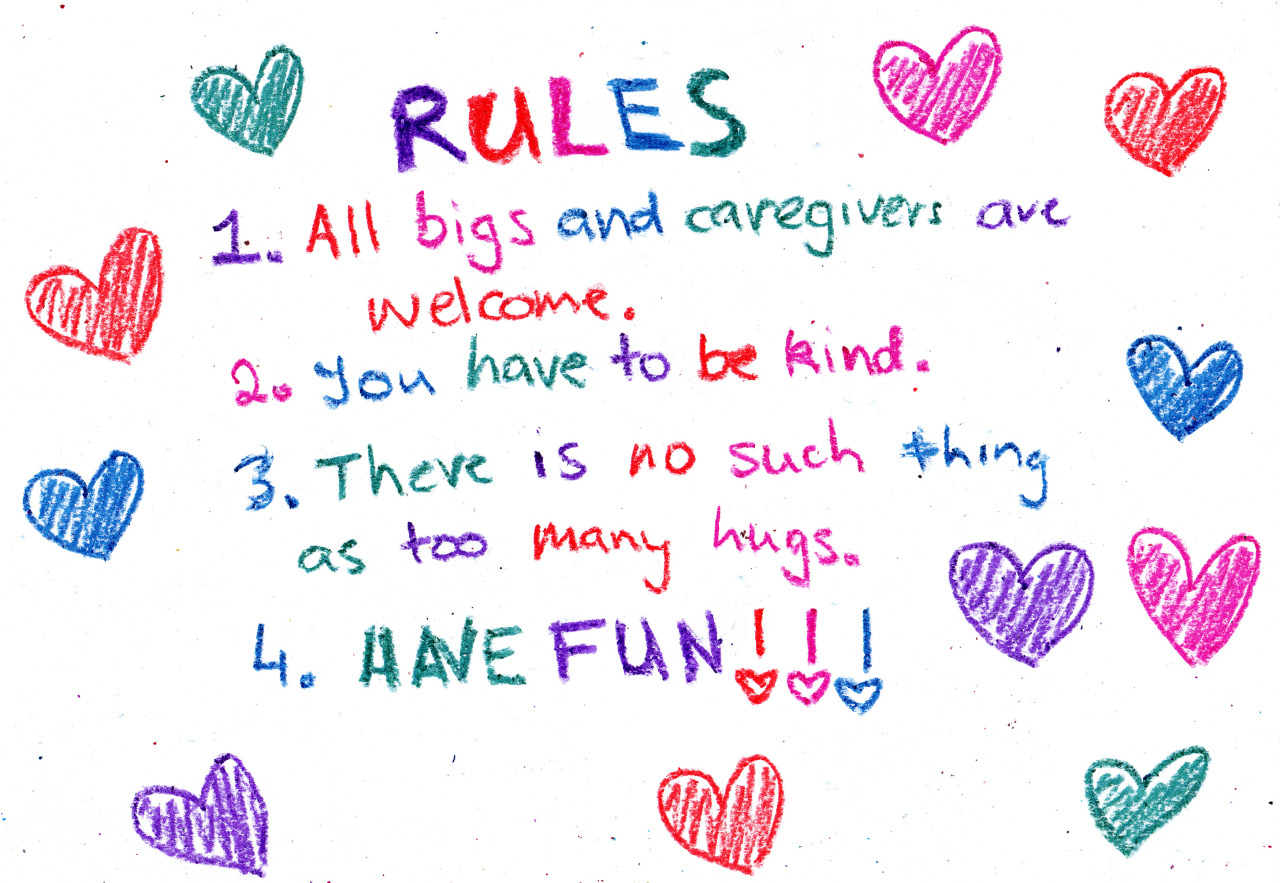 RULES
1. All bigs and caregivers are
welcome.
2. You have to be kind.
3. There is no such thing
as too many hugs.
4. HAVE FUN!!!